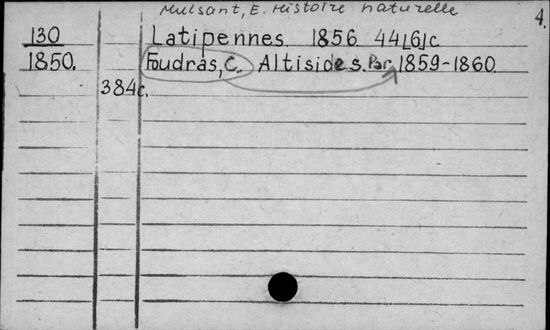 Mulsant, E. Histoire naturelle
4.
130 Latipennes. 1856 44[6]c
1850. Foudras, C. Altisides. Par 1859-1860.
384c.